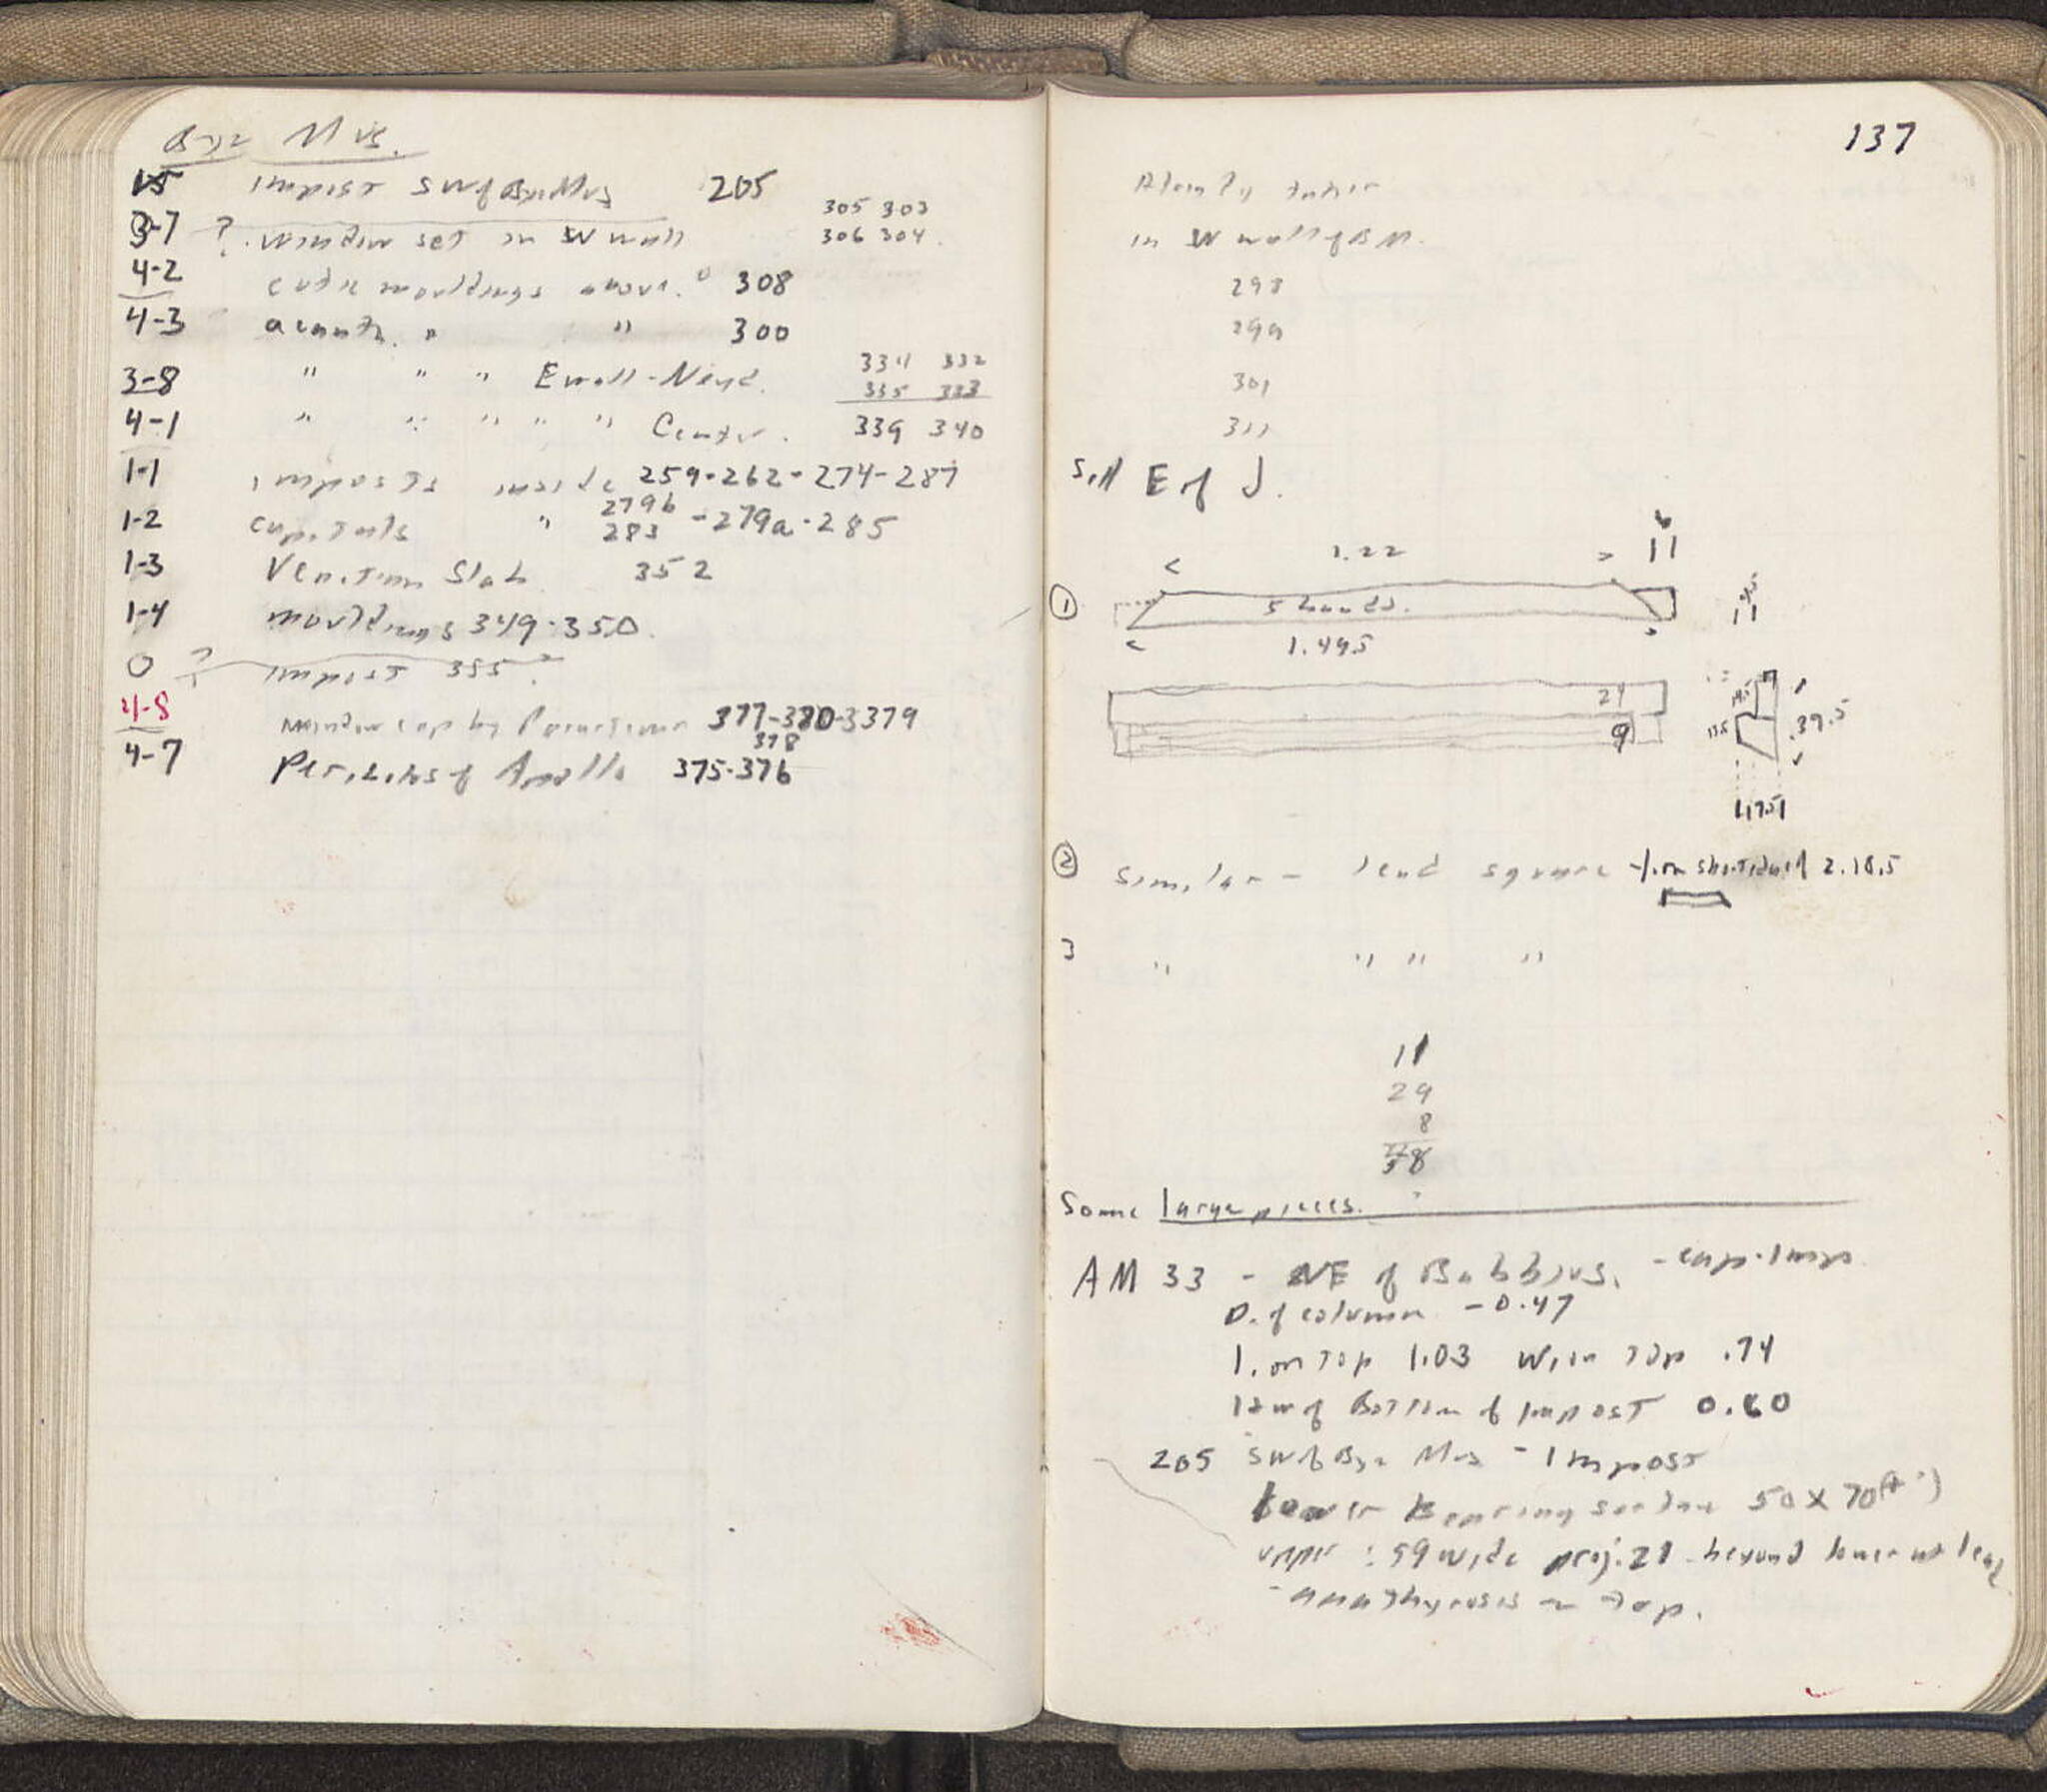 Byz Mus.
15 Impost SW of Byz Mus 205
305 303
3-7 ? window set in SW wall 306 304
4-2 mouldings above. 308
4-3 acanth. " " 300
334 332
3-8 " " " E wall - N end. 335 333
4-1 " " " " " Center. 339 340
1-1 imposts inside 259-262-274-287
279b
1-2 capitals " 283 -279a-285
1-3 Venetian Slab 352
1-4 mouldings 349-350.
0 ? impost 355.
4-8 window cap by 377-380-3379
378
4-7 Peribolos of Apollo 375-376
137
in SW wall of B M.
298
299
301
311
Sill E of J.
1.22 11
1 5 bands.
1.495
24
9
39.5
13.5
1751
2 Similar - 1 end square - on 2.18.5
3 " " " "
11
29
8
38
Some large pieces.
AM 33 - NE of Babbius. - cap-imp
D. of column - 0.47
l. on top 1.03 W. on top .74
of Bottom of Impost 0.60
205 SW of Byz Mus - Impost
lower Bearing surface 50 x 70(+)
upper : 59 wide proj. 21 beyond lower at least
- anathyrosis on top.